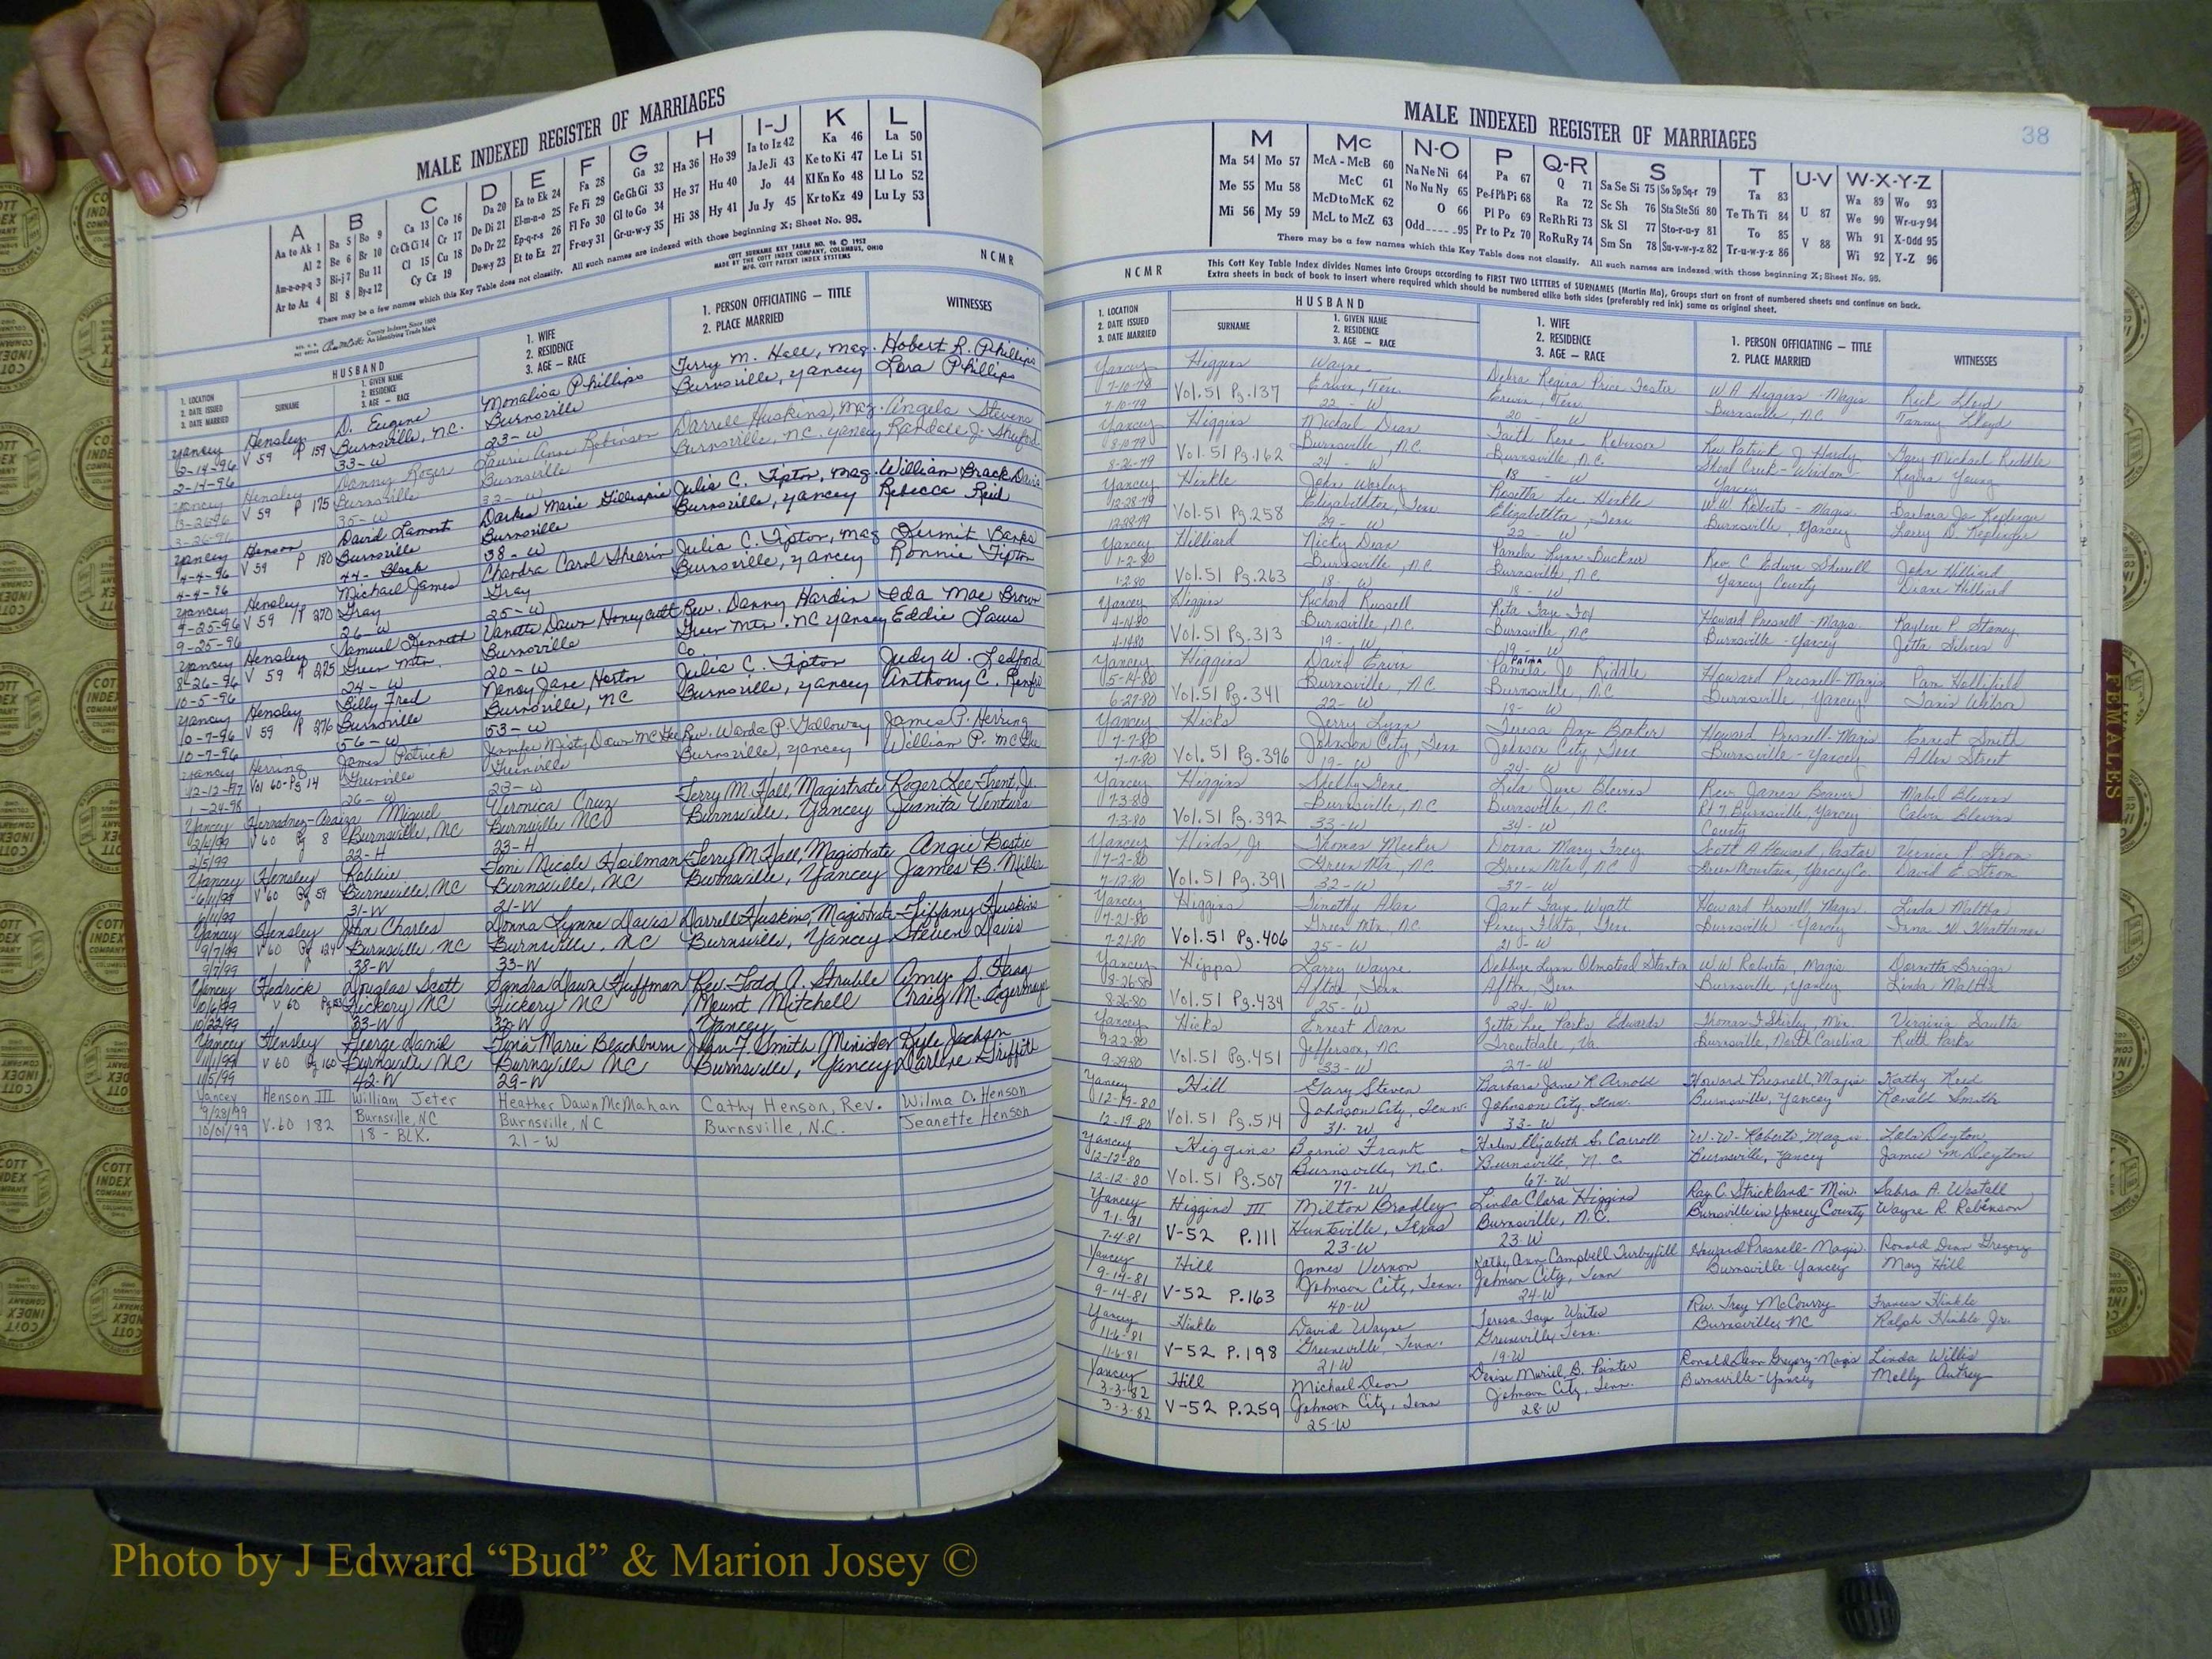 MALE INDEXED REGISTER OF MARRIAGES
A B C D E F G H I-J K L
Aa to Ak 1 Ba 5 Bo 9 Ca 13 Co 16 Da 20 Ea to Ek 24 Fa 28 Ga 32 Ha 36 Ho 39 Ia to Iz 42 Ka 46 La 50
Al 2 Be 6 Br 10 Ce Ch Ci 14 Cr 17 De Di 21 El-m-n-o 25 Fe Fi 29 Ge Gh Gi 33 He 37 Hu 40 Ja Je Ji 43 Ke to Ki 47 Le Li 51
Am-n-o-p-q 3 Bi-j 7 Bu 11 Cl 15 Cu 18 Do Dr 22 Ep-q-r-s 26 Fl Fo 30 Gl to Go 34 Hi 38 Hy 41 Jo 44 Kl Kn Ko 48 Ll Lo 52
Ar to Az 4 Bl 8 By-z 12 Cy Cz 19 Du-w-y 23 Et to Ez 27 Fr-u-y 31 Gr-u-w-y 35 Ju Jy 45 Kr to Kz 49 Lu Ly 53
There may be a few names which this Key Table does not classify. All such names are indexed with those beginning X; Sheet No. 95.
County Indexes Since 1888
An Identifying Trade Mark
COTT SURNAME KEY TABLE NO. 96 © 1952
MADE BY THE COTT INDEX COMPANY, COLUMBUS, OHIO
MFG. COTT PATENT INDEX SYSTEMS
NCMR
HUSBAND
1. LOCATION
2. DATE ISSUED
3. DATE MARRIED
SURNAME
1. GIVEN NAME
2. RESIDENCE
3. AGE — RACE
1. WIFE
2. RESIDENCE
3. AGE — RACE
1. PERSON OFFICIATING — TITLE
2. PLACE MARRIED
WITNESSES
Yancey Hensley D. Eugene Monalisa Phillips Terry M. Hall, Mag. Hobert R. Phillips
2-14-96 V 59 P 159 Burnsville, N.C. Burnsville Burnsville, Yancey Lora Phillips
2-14-96 33-W 23-W
Yancey Hensley Danny Roger Laurie Anne Robinson Darrell Huskins, Mag. Angela Stevens
3-26-96 V 59 P 175 Burnsville Burnsville Burnsville, NC. Yancey Randall J. Shuford
3-26-96 35-W 32-W
Yancey Henson David Lamont Darkes Marie Gillespie Julia C. Tipton, Mag. William Brack Davis
4-4-96 V 59 P 180 Burnsville Burnsville Burnsville, Yancey Rebecca Reid
4-4-96 44- Black 38-W
Yancey Hensley Michael James Chandra Carol Shearin Julia C. Tipton, Mag Kermit Banks
9-25-96 V 59 P 270 Gray Gray Burnsville, Yancey Ronnie Tipton
9-25-96 26-W 25-W
Yancey Hensley Samuel Kenneth Vanette Dawn Honeycutt Rev. Danny Hardin Leda Mae Brown
8-26-96 V 59 P 275 Green Mtn. Burnsville Green Mtn. NC Yancey Co. Eddie Laws
10-5-96 24-W 20-W
Yancey Hensley Billy Fred Nancy Jane Horton Julia C. Tipton Judy W. Ledford
10-7-96 V 59 P 276 Burnsville Burnsville, NC Burnsville, Yancey Anthony C. Renfro
10-7-96 56-W 53-W
Yancey Herring James Patrick Jennifer Misty Dawn McGee Rev. Wanda P. Galloway James P. Herring
12-12-97 Vol 60-Pg 14 Greenville Greenville Burnsville, Yancey William P. McGee
1-24-98 26-W 23-W
Yancey Hernadnez-Araiza Miguel Veronica Cruz Terry M. Hall, Magistrate Roger Lee Trent, Jr.
2/4/99 V 60 Pg 8 Burnsville, NC Burnsville NC Burnsville, Yancey Juanita Ventura
2/5/99 22-H 23-H
Yancey Hensley Robbie Toni Nicole Hoilman Terry M Hall, Magistrate Angie Bostic
6/11/99 V 60 Pg 59 Burnsville, NC Burnsville, NC Burnsville, Yancey James B. Miller
6/11/99 31-W 21-W
Yancey Hensley John Charles Donna Lynne Davis Darrell Huskins, Magistrate Tiffany Huskins
9/7/99 V 60 Pg 124 Burnsville, NC Burnsville, NC Burnsville, Yancey Steven Davis
9/7/99 38-W 33-W
Yancey Hedrick Douglas Scott Sandra Dawn Huffman Rev. Todd A. Struble Amy S. Haag
10/6/99 V 60 Hickory NC Hickory NC Mount Mitchell Craig M.
10/23/99 33-W 32-W Yancey
Yancey Hensley George Daniel Tina Marie Blackburn Jean F. Smith Minister Dyle Jackson
11/1/99 V 60 Pg 160 Burnsville NC Burnsville NC Burnsville, Yancey Darlene Griffith
11/5/99 42-W 29-W
Yancey Henson III William Jeter Heather Dawn McMahan Cathy Henson, Rev. Wilma O. Henson
9/23/99 V.60 182 Burnsville, NC Burnsville, NC Burnsville, N.C. Jeanette Henson
10/01/99 18 - BLK. 21-W
MALE INDEXED REGISTER OF MARRIAGES
38
M Mc N-O P Q-R S T U-V W-X-Y-Z
Ma 54 Mo 57 McA - McB 60 Na Ne Ni 64 Pa 67 Q 71 Sa Se Si 75 So Sp Sq-r 79 Ta 83 Wa 89 Wo 93
Me 55 Mu 58 McC 61 No Nu Ny 65 Pe-f Ph Pi 68 Ra 72 Sc Sh 76 Sta Ste Sti 80 Te Th Ti 84 U 87 We 90 Wr-u-y 94
Mi 56 My 59 McD to McK 62 O 66 Pl Po 69 Re Rh Ri 73 Sk Sl 77 Sto-r-u-y 81 To 85 Wh 91 X-Odd 95
McL to McZ 63 Odd 95 Pr to Pz 70 Ro Ru Ry 74 Sm Sn 78 Su-v-w-y-z 82 Tr-u-w-y-z 86 V 88 Wi 92 Y-Z 96
There may be a few names which this Key Table does not classify. All such names are indexed with those beginning X; Sheet No. 95.
NCMR
This Cott Key Table Index divides Names into Groups according to FIRST TWO LETTERS of SURNAMES (Martin Ma), Groups start on front of numbered sheets and continue on back.
Extra sheets in back of book to insert where required which should be numbered alike both sides (preferably red ink) same as original sheet.
HUSBAND
1. LOCATION
2. DATE ISSUED
3. DATE MARRIED
SURNAME
1. GIVEN NAME
2. RESIDENCE
3. AGE — RACE
1. WIFE
2. RESIDENCE
3. AGE — RACE
1. PERSON OFFICIATING — TITLE
2. PLACE MARRIED
WITNESSES
Yancey Higgins Wayne Debra Regina Price Foster W.A. Higgins - Magis Rick Lloyd
7-10-79 Vol.51 Pg.137 Erwin, Ten. Erwin, Ten. Burnsville, N.C. Tammy Lloyd
7-10-79 22 - W 20 - W
Yancey Higgins Michael Dean Faith Rene Robinson Rev. Patrick J. Hardy Gary Michael Riddle
8-10-79 Vol.51 Pg.162 Burnsville, N.C. Burnsville, N.C. Shoal Creek - Yancey Regina Young
8-26-79 24 - W 18 - W
Yancey Hinkle John Worley Rosetta Lee Hinkle W.W. Roberts - Magis. Barbara Jo Keplinger
12-28-79 Vol.51 Pg.258 Elizabethton, Tenn Elizabethton, Tenn Burnsville, Yancey Larry D. Keplinger
12-28-79 29 - W 22 - W
Yancey Hilliard Nicky Dean Pamela Lynn Buckner Rev. C. Edwin Sherrill John Hilliard
1-2-80 Vol.51 Pg.263 Burnsville, N.C. Burnsville, N.C. Yancey County Diane Hilliard
1-2-80 18 - W 18 - W
Yancey Higgins Richard Russell Rita Faye Howard Presnell - Magis. Raylene P. Stamey
4-14-80 Vol.51 Pg.313 Burnsville, N.C. Burnsville, N.C. Burnsville - Yancey Jetta Silvers
4-14-80 19 - W 19 - W
Yancey Higgins David Ervin Pamela Jo Riddle Howard Presnell-Magis Pam Hollifield
5-14-80 Vol.51 Pg.341 Burnsville, N.C. Burnsville, N.C. Burnsville, Yancey Janis Watson
6-27-80 22- W 19- W
Yancey Hicks Jerry Lynn Teresa Ann Booker Howard Presnell-Magis Ernest Smith
7-7-80 Vol.51 Pg.396 Johnson City, Tenn Johnson City, Tenn Burnsville - Yancey Allen Street
7-7-80 19- W 24- W
Yancey Higgins Shelby Gene Lila June Blevins Rev. James Beaver Mabel Blevins
7-3-80 Vol.51 Pg.392 Burnsville, N.C Burnsville, N.C. Rt 7 Burnsville, Yancey County Calvin Blevins
7-3-80 33-W 34-W
Yancey Hinds Jr Thomas Meeker Donna Mary Frey Scott A Howard, Pastor Vernice P. Strom
7-2-80 Vol.51 Pg.391 Green Mtn, N.C Green Mtn, N.C Green Mountain, Yancey Co. David E Strom
7-12-80 32-W 37-W
Yancey Higgins Timothy Alan Janet Faye Wyatt Howard Presnell Magis. Linda Maltba
7-21-80 Vol.51 Pg.406 Green Mtn, N.C Piney Flats, Tenn Burnsville - Yancey W. Weatherman
7-21-80 25-W 21-W
Yancey Hipps Larry Wayne Debbye Lynn Olmstead Stanton W.W Roberts, Magis. Dornetta Briggs
8-26-80 Vol.51 Pg.434 Afton, Tenn. Afton, Tenn Burnsville, Yancey Linda Maltba
8-26-80 25-W 24-W
Yancey Hicks Ernest Dean Zetta Lee Parks Edwards Thomas F Shirley, Min Virginia Saults
9-22-80 Vol.51 Pg.451 Jefferson, NC Troutdale, Va. Burnsville, North Carolina Ruth Parks
9-29-80 33-W 27-W
Yancey Hill Gary Steven Barbara Jane R Arnold Howard Presnell, Magis Kathy Reid
12-19-80 Vol.51 Pg.514 Johnson City, Tenn. Johnson City, Tenn. Burnsville, Yancey Ronald Smith
12-19-80 31-W 33-W
Yancey Higgins Bernie Frank Helen Elizabeth S. Carroll W.W. Roberts, Mag Lola Deyton
12-12-80 Vol.51 Pg.507 Burnsville, N.C. Burnsville, N.C. Burnsville, Yancey James M Deyton
12-12-80 77-W 67-W
Yancey Higgins III Milton Bradley Linda Clara Higgins Ray C. Strickland - Min. Sabra A. Westall
7-1-81 V-52 P.111 Huntsville, Texas Burnsville, N.C. Burnsville in Yancey County Wayne R. Robinson
7-4-81 23-W 23-W
Yancey Hill James Vernon Kathy Ann Campbell Turbyfill Howard Presnell-Magis. Ronald Dean Gregory
9-14-81 V-52 P.163 Johnson City, Tenn. Johnson City, Tenn Burnsville-Yancey Mary Hill
9-14-81 40-W 24-W
Yancey Hinkle David Wayne Teresa Faye Waites Rev. Troy McCourry Frances Hinkle
11-6-81 V-52 P.198 Greeneville, Tenn. Greeneville, Tenn. Burnsville, NC Ralph Hinkle Jr.
11-6-81 21-W 19-W
Yancey Hill Michael Dean Denise Muriel B. Painter Ronald Dean Gregory-Magis Linda Willis
3-3-82 V-52 P.259 Johnson City, Tenn Johnson City, Tenn. Burnsville-Yancey Melly Autrey
3-3-82 25-W 28-W
FEMALES
COTT INDEX COMPANY
Photo by J Edward “Bud” & Marion Josey ©